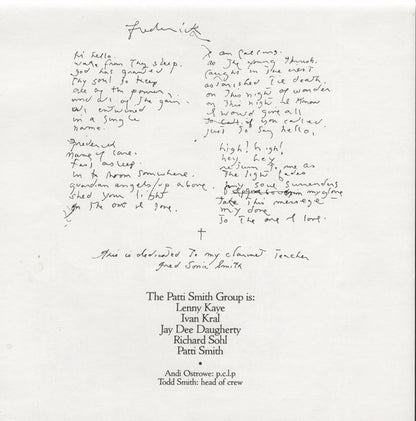 Frederick
hi hello.
wake from thy sleep.
God has granted
thy soul to keep
all of the power
and all of the
in a single
name.
Frederick
name of care.
fast asleep
in a room somewhere.
guardian angels up above.
shed your light
on the one I love.
as thy young
caught in the nest
death.
on this night of wonder
on this night
I would give all
if you called
just to say hello.
high! high!
hey hey
return to me as
the light fades
my soul surrenders
take this message
my dove
to the one I love.
†
this is dedicated to my clarinet teacher
fred sonic smith
The Patti Smith Group is:
Lenny Kaye
Ivan Kral
Jay Dee Daugherty
Richard Sohl
Patti Smith
•
Andi Ostrowe: p.c.l.p
Todd Smith: head of crew